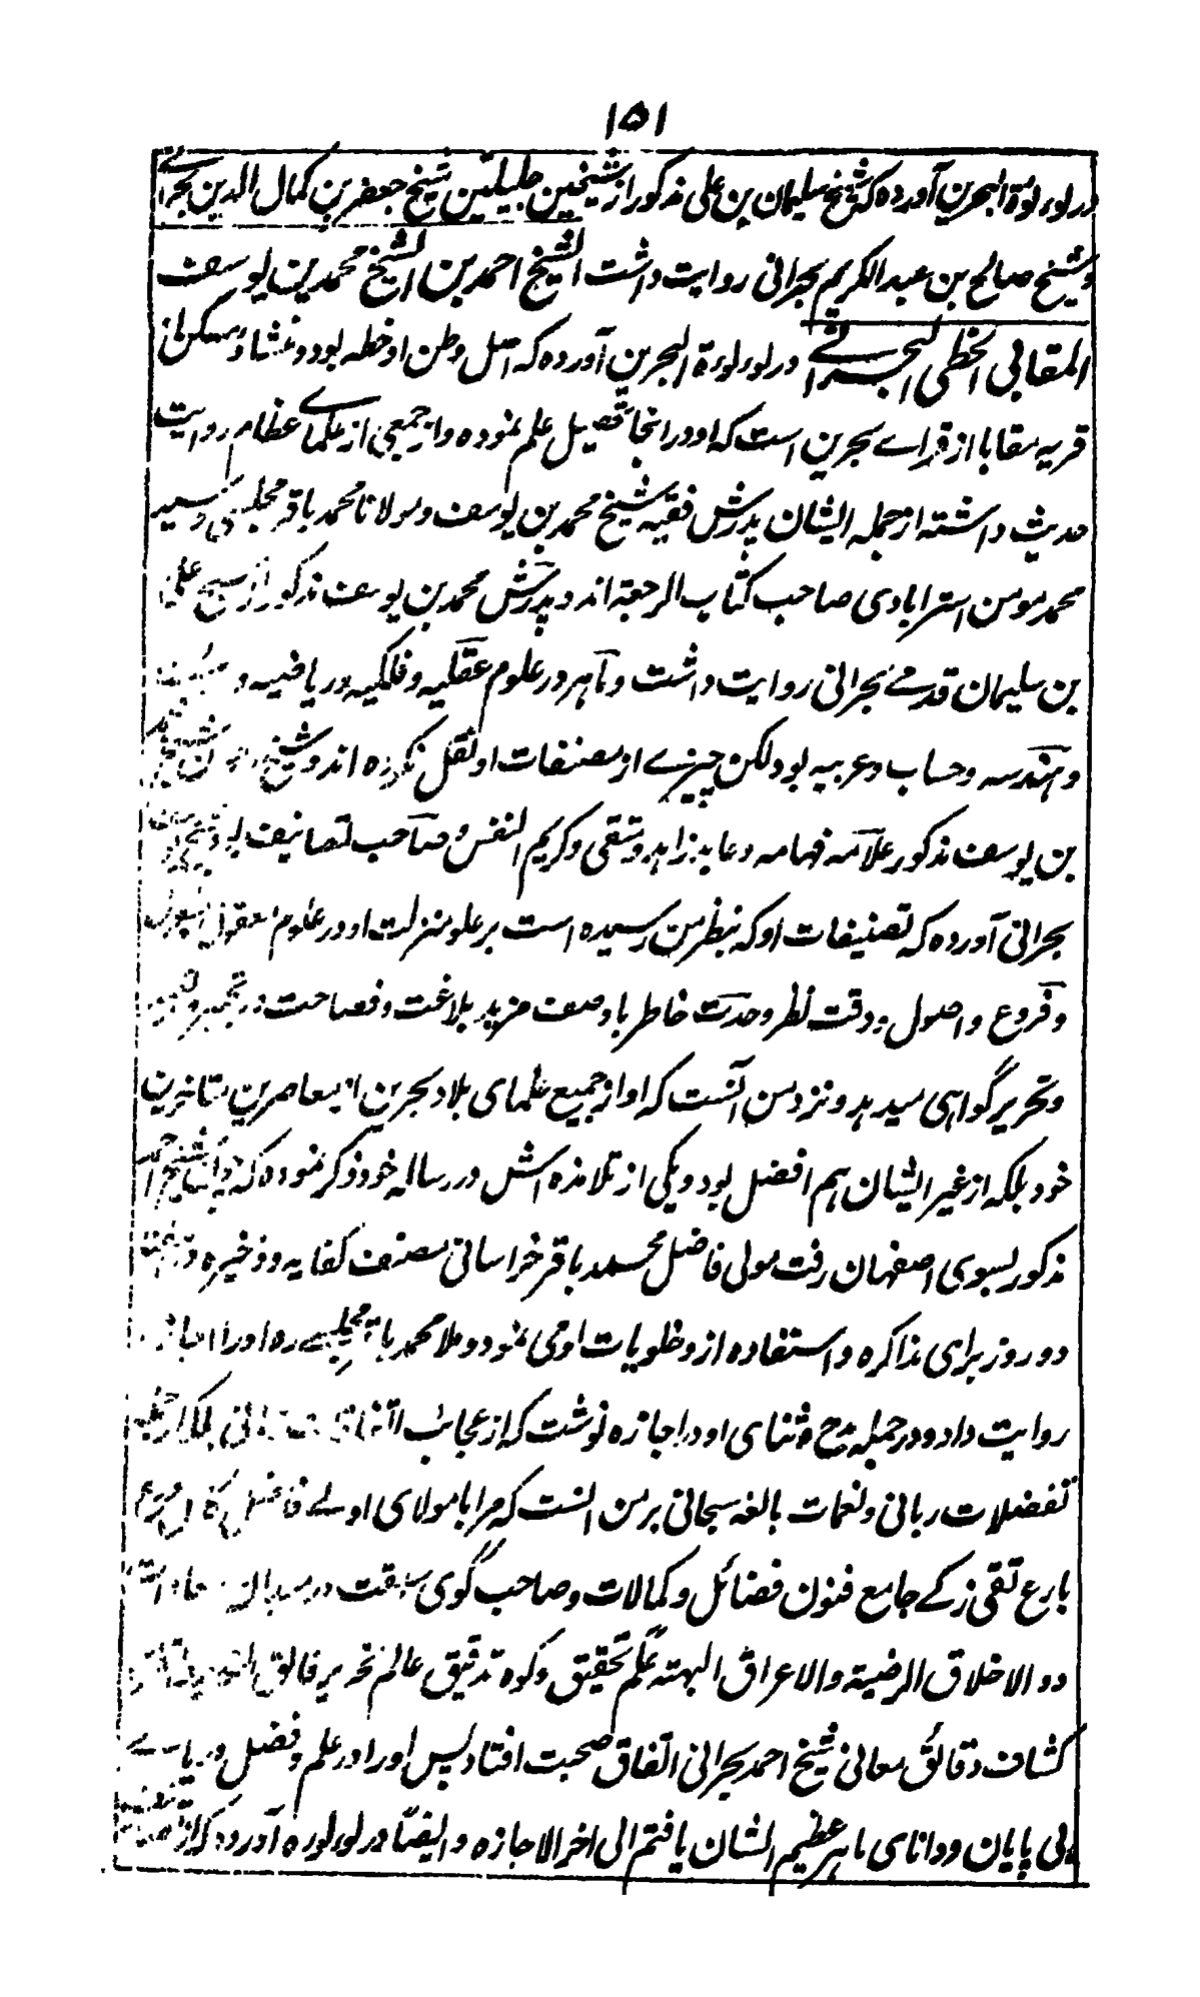 ۱۵۱
در لوءلوة البحرین آورده که شیخ سلیمان بن علی مذکور از شیخین جلیلین شیخ جعفر بن کمال الدین بحرانے
و شیخ صالح بن عبد الکریم بحرانی روایت داشت الشیخ احمد بن الشیخ محمد بن یوسف
المقابی الخطی البحرانے در لوءلوءة البحرین آورده که اصل وطن او خطه بود و منشاء و مسکن او
قریه مقابا از قراے بحرین است که او در انجا تحصیل علم نموده و از جمعی از علماے عظام روایت
حدیث داشته از جمله ایشان پدرش فقیه شیخ محمد بن یوسف و مولانا محمد باقر مجلسی و سید
محمد مومن استرابادی صاحب کتاب الرجعة اند و پدرش محمد بن یوسف مذکور از شیخ علی
بن سلیمان قدمے بحرانی روایت داشت و ماهر در علوم عقلیه و فلکیه و ریاضیه و
و هندسه و حساب و عربیه بود لکن چیزے از مصنفات او نقل نکرده اند و شیخ
بن یوسف مذکور علامه فهامه و عابد زاهد و متقی و کریم النفس و صاحب تصانیف بود
بحرانی آورده که تصنیفات او که بنظر من رسیده است بر علو منزلت او در علوم معقول
و فروع و اصول و دقت نظر و حدت خاطر با وصف مزید بلاغت و فصاحت در تعبیر
و تحریر گواهی میدهد و نزد من آنست که او از جمیع علمای بلاد بحرین از معاصرین متاخرین
خود بلکه از غیر ایشان هم افضل بود و یکی از تلامذه اش در رساله خود ذکر نموده که شیخ احمد
مذکور بسوی اصفهان رفت مولی فاضل محمد باقر خراسانی مصنف کفایه و ذخیره
دو روز برای مذاکره و استفاده از و خلویات او می نمود و ملا محمد باقر مجلسے ره او را اجازه
روایت داد و در جمله مدح و ثنای او در اجازه نوشت که از عجائب بلکه از جمله
تفضلات ربانی و نعمات بالغه سبحانی بر من انست که مرا با مولای اولے فاضل کامل
بارع تقی زکے جامع فنون فضائل و کمالات و صاحب گوی سبقت در میدان
ذو الاخلاق الرضیة والاعراق البهیه علم تحقیق و کوه تدقیق عالم نحریر فائق
کشاف دقائق معانی شیخ احمد بحرانی اتفاق صحبت افتاد پس او را در علم و فضل دریاے
بی پایان و دانای ماهر عظیم الشان یافتم الی اخر الاجازه و ایضا در لوءلوءه آورده که از